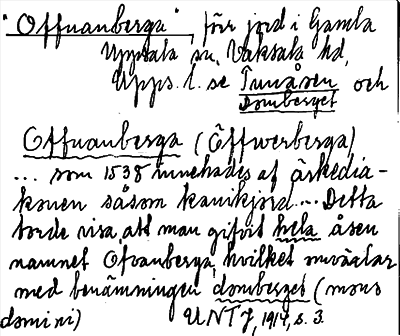 "Offuanberga", förr jord i Gamla
Uppsala sn, Vaksala hd,
Upps. l. se Tunåsen och
Domberget
Offuanberga (Öffwerberga)
... som 1538 innehades af ärkedia-
konen såsom kanikjord ... Detta
torde visa, att man gifvit hela åsen
namnet Ofvanberga, hvilket omväxlar
med benämningen domberget (mons
domini) UNT 7/1, 1914, s. 3.